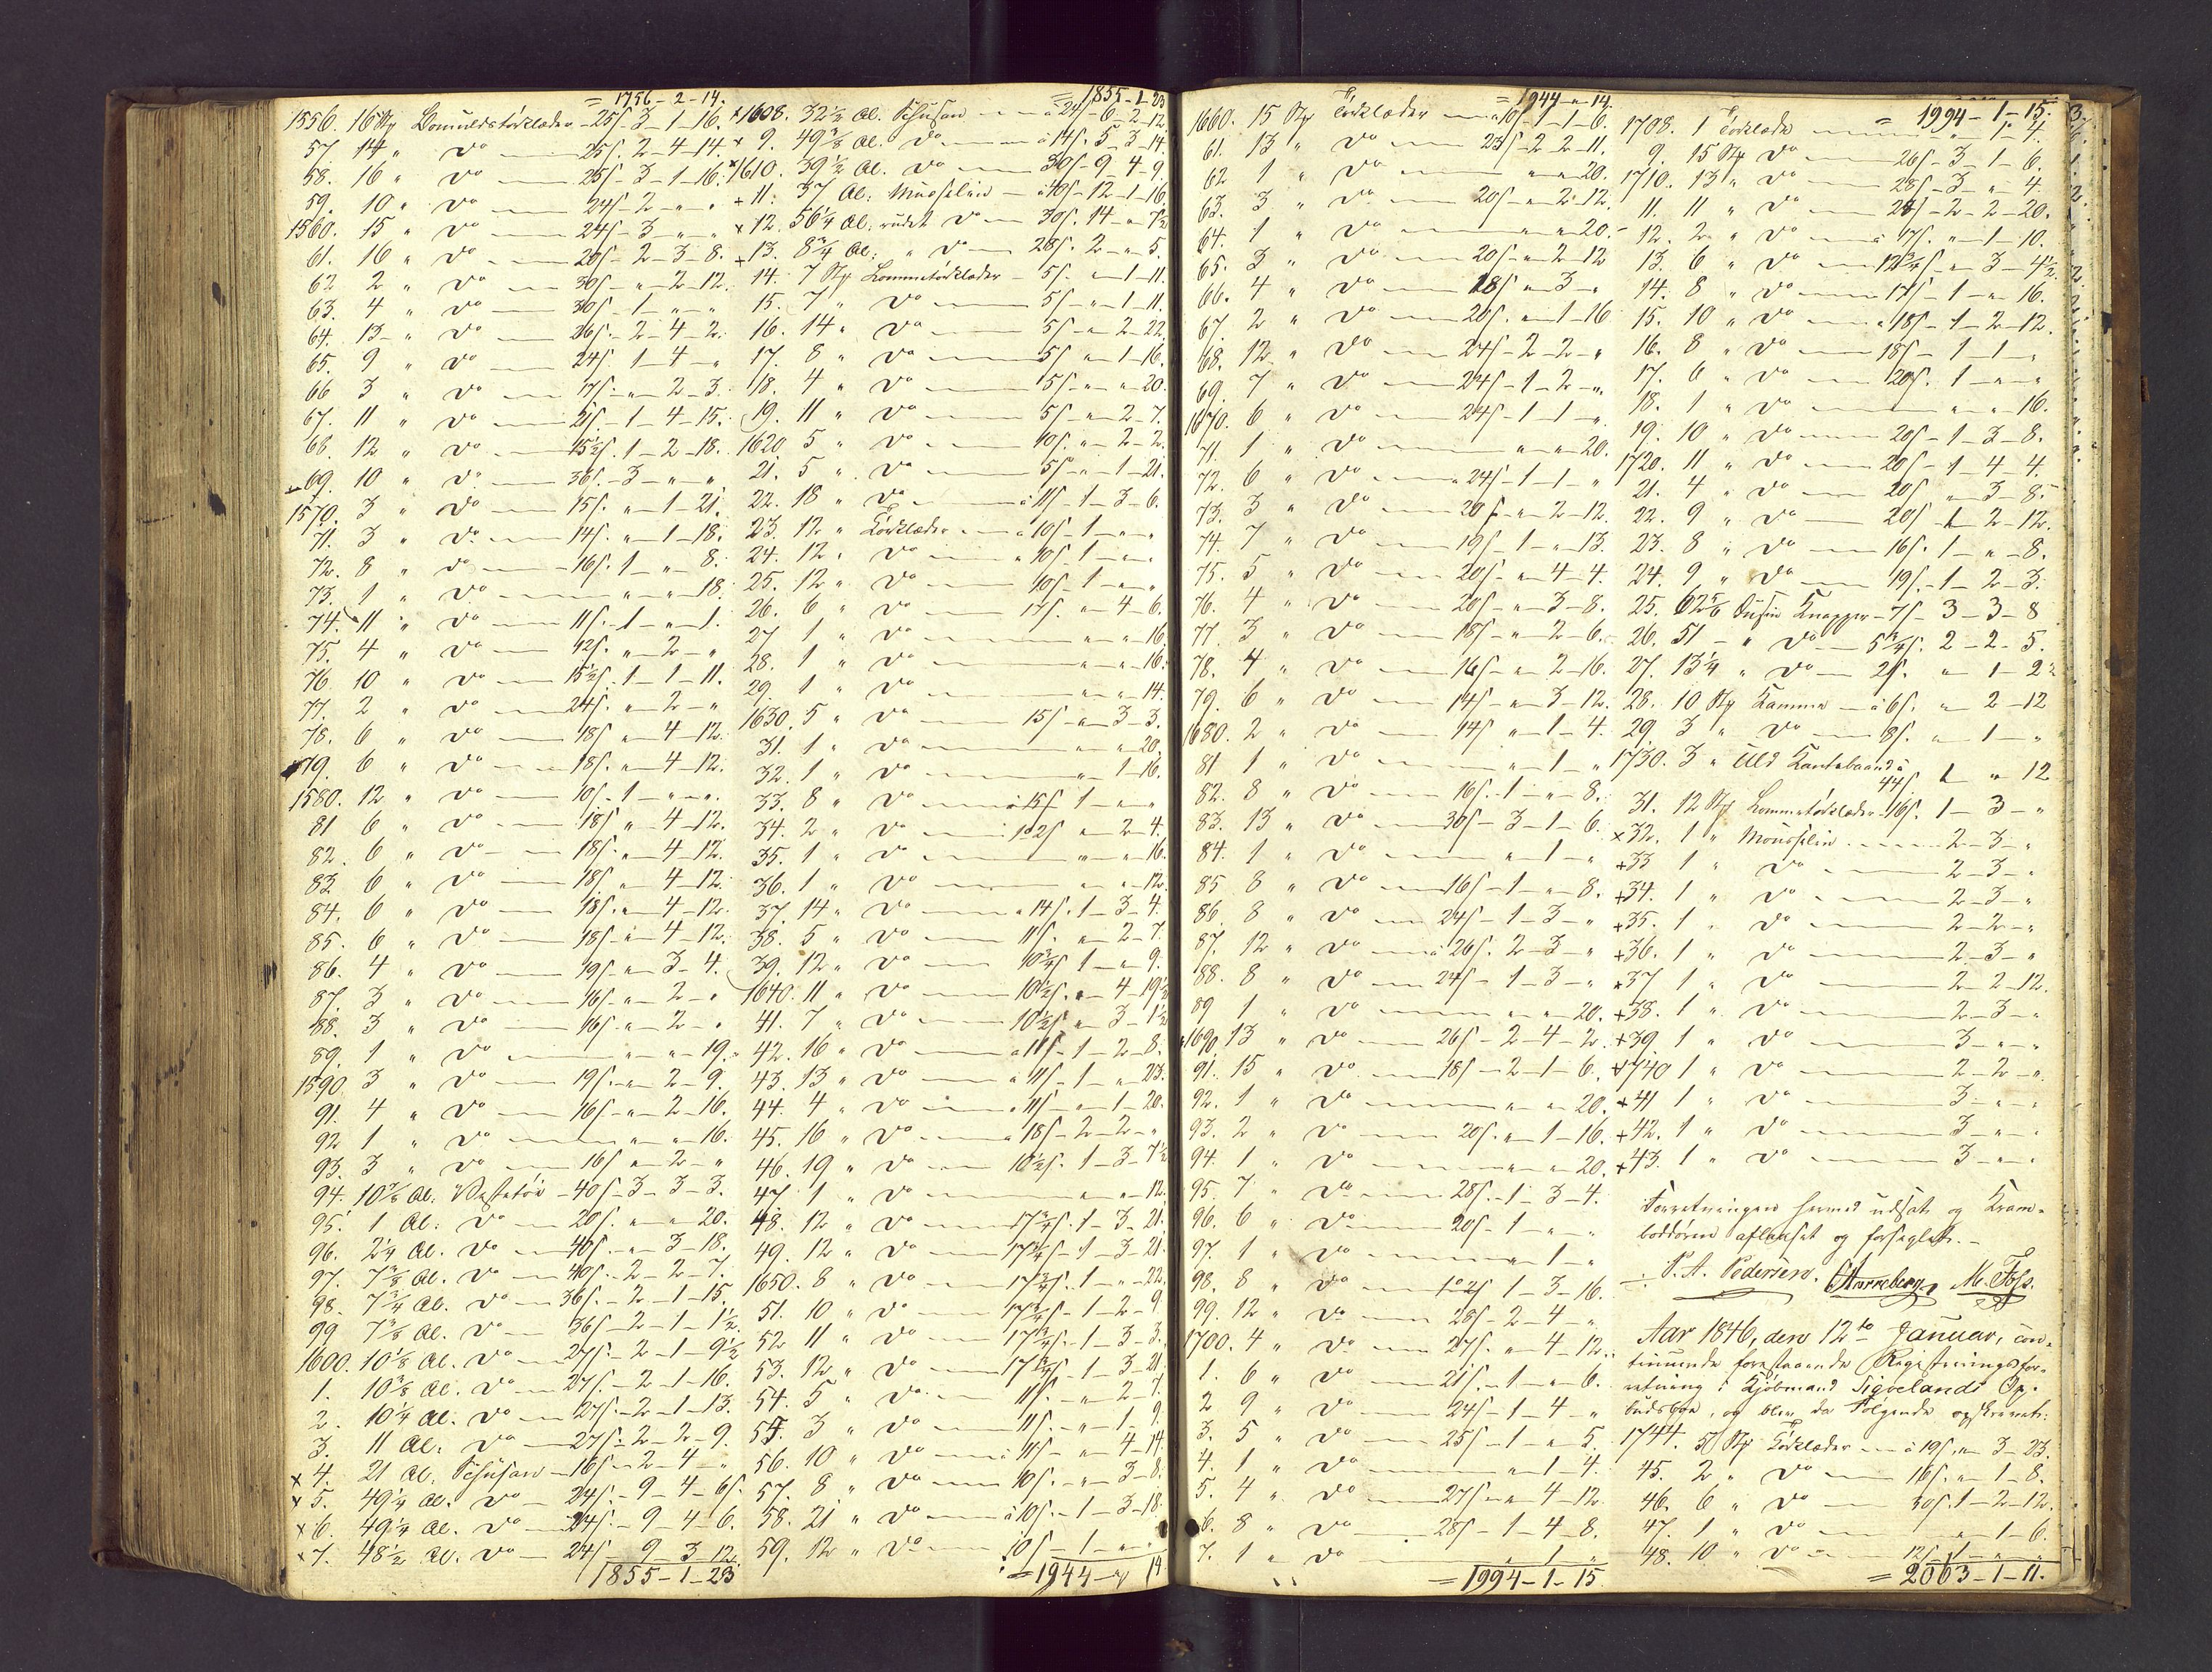 = 1756-2-14.
1556. 16 Stp Bomuldstörklæder - 25ſ - 3-1-16.
57. 14 " Do - 25ſ. 2-4-14.
58. 16 " Do - 25ſ - 3-1-16.
59. 10 " Do - 24ſ - 2 - " - "
1560. 15 " Do - 24ſ - 3 - " - "
61. 16 " Do - 20ſ - 2-3-8.
62. 2 " Do - 30ſ - " - 2-12.
63. 4 " Do - 30ſ - 1 - " - "
64. 13 " Do - 26ſ - 2-4-2.
65. 9 " Do - 24ſ 1-4 - "
66. 3 " Do - 17ſ - " - 2-3.
67. 11 " Do - 21ſ - 1-4-15.
68. 12 " Do - 15½ſ. 1-2-18.
69. 10 " Do - 36ſ. - 3 - " - "
1570. 3 " Do - 15ſ. " - 1-21.
71. 3 " Do - 14ſ. " - 1-18.
72. 8 " Do - 16ſ. 1 - " - 8.
73. 1 " Do - " - " - 18.
74. 11 " Do - 11ſ. 1 - " - 1.
75. 4 " Do - 12ſ. " - 2 - "
76. 10 " Do - 15½ſ. 1-1-11.
77. 2 " Do - 24ſ. " - 2 - "
78. 6 " Do - 18ſ " - 4-12.
79. 6 " Do - 18ſ. " - 4-12.
1580. 12 " Do - 10ſ - 1 - " - "
81. 6 " Do - 18ſ " - 4-12.
82. 6 " Do - 18ſ. " - 4-12.
83. 6 " Do - 18ſ. " - 4-12.
84. 6 " Do - 18ſ. " - 4-12.
85. 6 " Do - 18ſ - " - 4-12.
86. 4 " Do - 19ſ - " - 3-4.
87. 3 " Do - 16ſ. " - 2 - "
88. 3 " Do - 16ſ. " - 2 - "
89. 1 " Do - " - " - 19.
1590. 3 " Do - 19ſ. " - 2-9.
91. 4 " Do - 16ſ - " - 2-16.
92. 1 " Do - " - " - 16.
93. 3 " Do - 16ſ " - 2 - "
94. 10⅞ Al. Vestetöi - 40ſ - 3-3-3.
95. 1 Al. Do - 20ſ. " - " - 20.
96. 2¼ Al. Do - 40ſ. " - 3-18.
97. 7⅜ Al. Do - 40ſ. - 2-2-7.
98. 7¾ Al. Do - 36ſ. - 2-1-15.
99. 7⅜ Al. Do - 36ſ - 2-1-1½.
1600. 10⅛ Al. Do - 27ſ. - 2-1-9½
1. 10⅜ Al. Do - 27ſ. - 2-1-16.
2. 10¼ Al. Do - 27ſ. - 2-1-13.
3. 11 Al. Do - 27ſ - 2-2-9.
x 4. 21 Al. Schusan - 16ſ - 2-4 - "
x 5. 49¼ Al. Do - 24ſ. - 9-4-6.
x 6. 49¼ Al. Do - 24ſ. - 9-4-6.
x 7. 48½ Al. Do - 24ſ 9-3-12.
1855-1-23
= 1855-1-23
x 1608. 32½ Al. Schusan - à 24ſ - 6-2-12.
x 9. 49⅜ Al. Do - à 14ſ. 5-3-14
x 1610. 39½ Al. Do - 30ſ - 9-4-9.
+ 11. 37 Al. Musselin - à 40ſ - 12-1-16.
x 12. 56¼ Al. rudet Do - 30ſ. 14 - " - 7½
+ 13. 8¾ Al. " Do - 28ſ. 2 - " - 5.
14. 7 Stp Lommetörklæder - 5ſ. " - 1-11.
15. 7 " Do - 5ſ - " - 1-11.
16. 14 " Do - 5ſ - " - 2-22.
17. 8 " Do - 5ſ " - 1-16.
18. 4 " Do - 5ſ - " - " - 20.
19. 11 " Do - 5ſ - " - 2-7.
1620. 5 " Do - 10ſ. " - 2-2.
21. 5 " Do - 5ſ - " - 1-21.
22. 18 " Do - à 11ſ - 1-3-6.
23. 12 " Törklæder - à 10ſ - 1 - " - "
24. 12 " Do - " 10ſ. 1 - " - "
25. 12 " Do - 10ſ - 1 - " - "
26. 6 " Do - 17ſ. " - 4-6.
27. 1 " Do - " - " - 16.
28. 1 " Do - " - " - 16.
29. 1 " Do - " - " - 14.
1630. 5 " Do - 15ſ - " - 3-3.
31. 1 " Do - " - " - 20.
32. 1 " Do - " - 1-16.
33. 8 " Do - à 15ſ 1 - " - "
34. 2 " Do - " - 2-4.
35. 1 " Do - " - " - 16.
36. 1 " Do - " - " - 12.
37. 14 " Do - " 14ſ. 1-3-4.
38. 5 " Do - 11ſ. " - 2-7.
39. 12 " Do - 10¾ſ 1 - " - 9.
1640. 11 " Do - 10½ſ. " - 4-19½
41. 7 " Do - 10½ſ " - 3-1½
42. 16 " Do - " 11ſ - 1-2-8.
43. 13 " Do - à 11ſ - 1 - " - 23.
44. 4 " Do - " 11ſ - " - 1-20.
45. 16 " Do - " 18ſ - 2-2 - "
46. 19 " Do - 10½ſ. 1-3-7½
47. 1 " Do - " - " - 12.
48. 12 " Do - 17¾ſ. 1-3-21.
49. 12 " Do - 17¾ſ - 1-3-21.
1650. 8 " Do - 17¾ſ. 1 - " - 22.
51. 10 " Do - 17¾ſ - 1-2-9.
52. 11 " Do - 17¾ſ. - 1-3-3.
53. 12 " Do - 17¾ſ - 1-3-21.
54. 5 " Do - 11ſ. - " - 2-7.
55. 3 " Do - 11ſ. - " - 1-9.
56. 10 " Do - à 11ſ - " - 4-14.
57. 8 " Do - 10ſ. - " - 3-8.
58. 21 " Do - à 10ſ. - 1-3-18.
59. 12 " Do - 10ſ - 1 - " - "
= 1944 - " - 14.
= 1944 - " - 14.
1660. 15 Stp Törklæder - à 10ſ - 1-1-6.
61. 13 " Do - 23ſ - 2-2-11.
62. 1 " Do - " - " - 20.
63. 3 " Do - 20ſ - " - 2-12.
64. 1 " Do - " - " - 20.
65. 3 " Do - 20ſ - " - 2-12
66. 4 " Do - 18ſ " - 3 - "
67. 2 " Do - 20ſ. " - 1-16
68. 12 " Do - 24ſ - 2-2 - "
69. 7 " Do - 24ſ - 1-2 - "
1670. 6 " Do - 24ſ - 1-1 - "
71. 1 " Do - " - " - 20.
72. 6 " Do - " 24ſ - 1-1 - "
73. 3 " Do - 20ſ - " - 2-12.
74. 7 " Do - 19ſ - 1 - " - 13.
75. 5 " Do - 20ſ - " - 4-4.
76. 4 " Do - 20ſ - " - 3-8.
77. 3 " Do - 18ſ - " - 2-6.
78. 4 " Do - 16ſ - " - 2-16.
79. 6 " Do - 14ſ - " - 3-12.
1680. 2 " Do - 14ſ " - 1-4.
81. 1 " Do - " - 1 - "
82. 8 " Do - 16ſ - 1 - " - 8.
83. 13 " Do - 30ſ - 3-1-6.
84. 1 " Do - " - 1 - "
85. 8 " Do - 16ſ - 1 - " - 8.
86. 8 " Do - 24ſ - 1-3 - "
87. 12 " Do - à 26ſ. 2-3 - "
88. 8 " Do - 24ſ - 1-3 - "
89. 1 " Do - " - " - 20.
1690. 13 " Do - 26ſ - 2-4-2.
91. 15 " Do - 18ſ - 2-1-6.
92. 1 " Do - " - " - 20.
93. 2 " Do - 20ſ. " - 1-16.
94. 1 " Do - " - " - 20.
95. 7 " Do - 28ſ. - 1-3-4.
96. 6 " Do - 20ſ - 1 - " - "
97. 1 " Do - " - 1 - "
98. 8 " Do - 1-3-16.
99. 12 " Do - 28ſ - 2-4 - "
1700. 4 " Do - 27ſ. " - 4-12.
1. 6 " Do - 21ſ. - 1 - " - 6.
2. 9 " Do - 24ſ - 1-4 - "
3. 5 " Do - 25ſ - 1 - " - 5.
4. 1 " Do - " - 1-4.
5. 4 " Do - 27ſ - " - 4-12.
6. 8 " Do - 28ſ - 1-4-8.
7. 1 " Do - " - 1 - "
= 1994-1-15.
= 1994-1-15.
1708. 1 Törklæde - " - 1-4.
9. 15 Stp Do - 26ſ - 3-1-6.
1710. 13 " Do - 28ſ - 3 - " - 4.
11. 11 " Do - 28ſ - 2-2-20.
12. 2 " Do - à 17ſ. " - 1-10.
13. 6 " Do - 12¾ſ - " - 3-4½
14. 8 " Do - 17ſ - 1 - " - 16.
15. 10 " Do - " 18ſ - 1-2-12.
16. 8 " Do - 18ſ - 1-1 - "
17. 6 " Do - 20ſ. 1 - " - "
18. 1 " Do - " - " - 16.
19. 10 " Do - 20ſ - 1-3-8.
1720. 11 " Do - 20ſ - 1-4-4.
21. 4 " Do - 20ſ " - 3-8.
22. 9 " Do - 20ſ - 1-2-12.
23. 8 " Do - 16ſ. 1 - " - 8.
24. 9 " Do - 19ſ - 1-2-3.
25. 62⅚ Dusin Knapper - 7ſ - 3-3-8
26. 51 - " Do - 5¾ſ. 2-2-5.
27. 13¼ " Do - 2ſ. " - 1-2½
28. 10 Stp Kamme - à 6ſ. " - 2-12
29. 3 " Do - 8ſ. " - 1 - "
1730. 3 " Uld Kantebaand à
44ſ. 1 - " 12
31. 12 Stp Lommetörklæder - 16ſ. 1-3 - "
x 32. 1 " Mousselin - 2-3 - "
+ 33. 1 " Do - 2-3 - "
+ 34. 1 " Do - 2-3 - "
+ 35. 1 " Do - 2-2 - "
+ 36. 1 " Do - 2-3 - "
+ 37. 1 " Do - 2-2-12.
+ 38. 1 " Do - 2-3 - "
+ 39. 1 " Do - 3 - " - "
+ 1740. 1 " Do - 2-2 - "
+ 41. 1 " Do - 3 - " - "
+ 42. 1 " Do - 3 - " - "
+ 43. 1 " Do - 3 - " - "
Forretningen hermed udsat og Kram-
boddören aflaaset og forseglet. -
P. A. Pedersen. M. Foss.
Aar 1846, den 12te Januar, con-
tinuerede forestaaende Registreringsfor-
retning i Kjöbmand Sigvelands Op-
budsboe, og blev da Fölgende opskrevet:
1744. 5 Stp Törklæder - à 19ſ. " - 3-23.
45. 2 " Do - 16ſ. " - 1-8.
46. 6 " Do - 30ſ. 1-2-12.
47. 1 " Do - " - 1-6.
48. 10 " Do - 12ſ - 1 - " - "
= 2063-1-11.